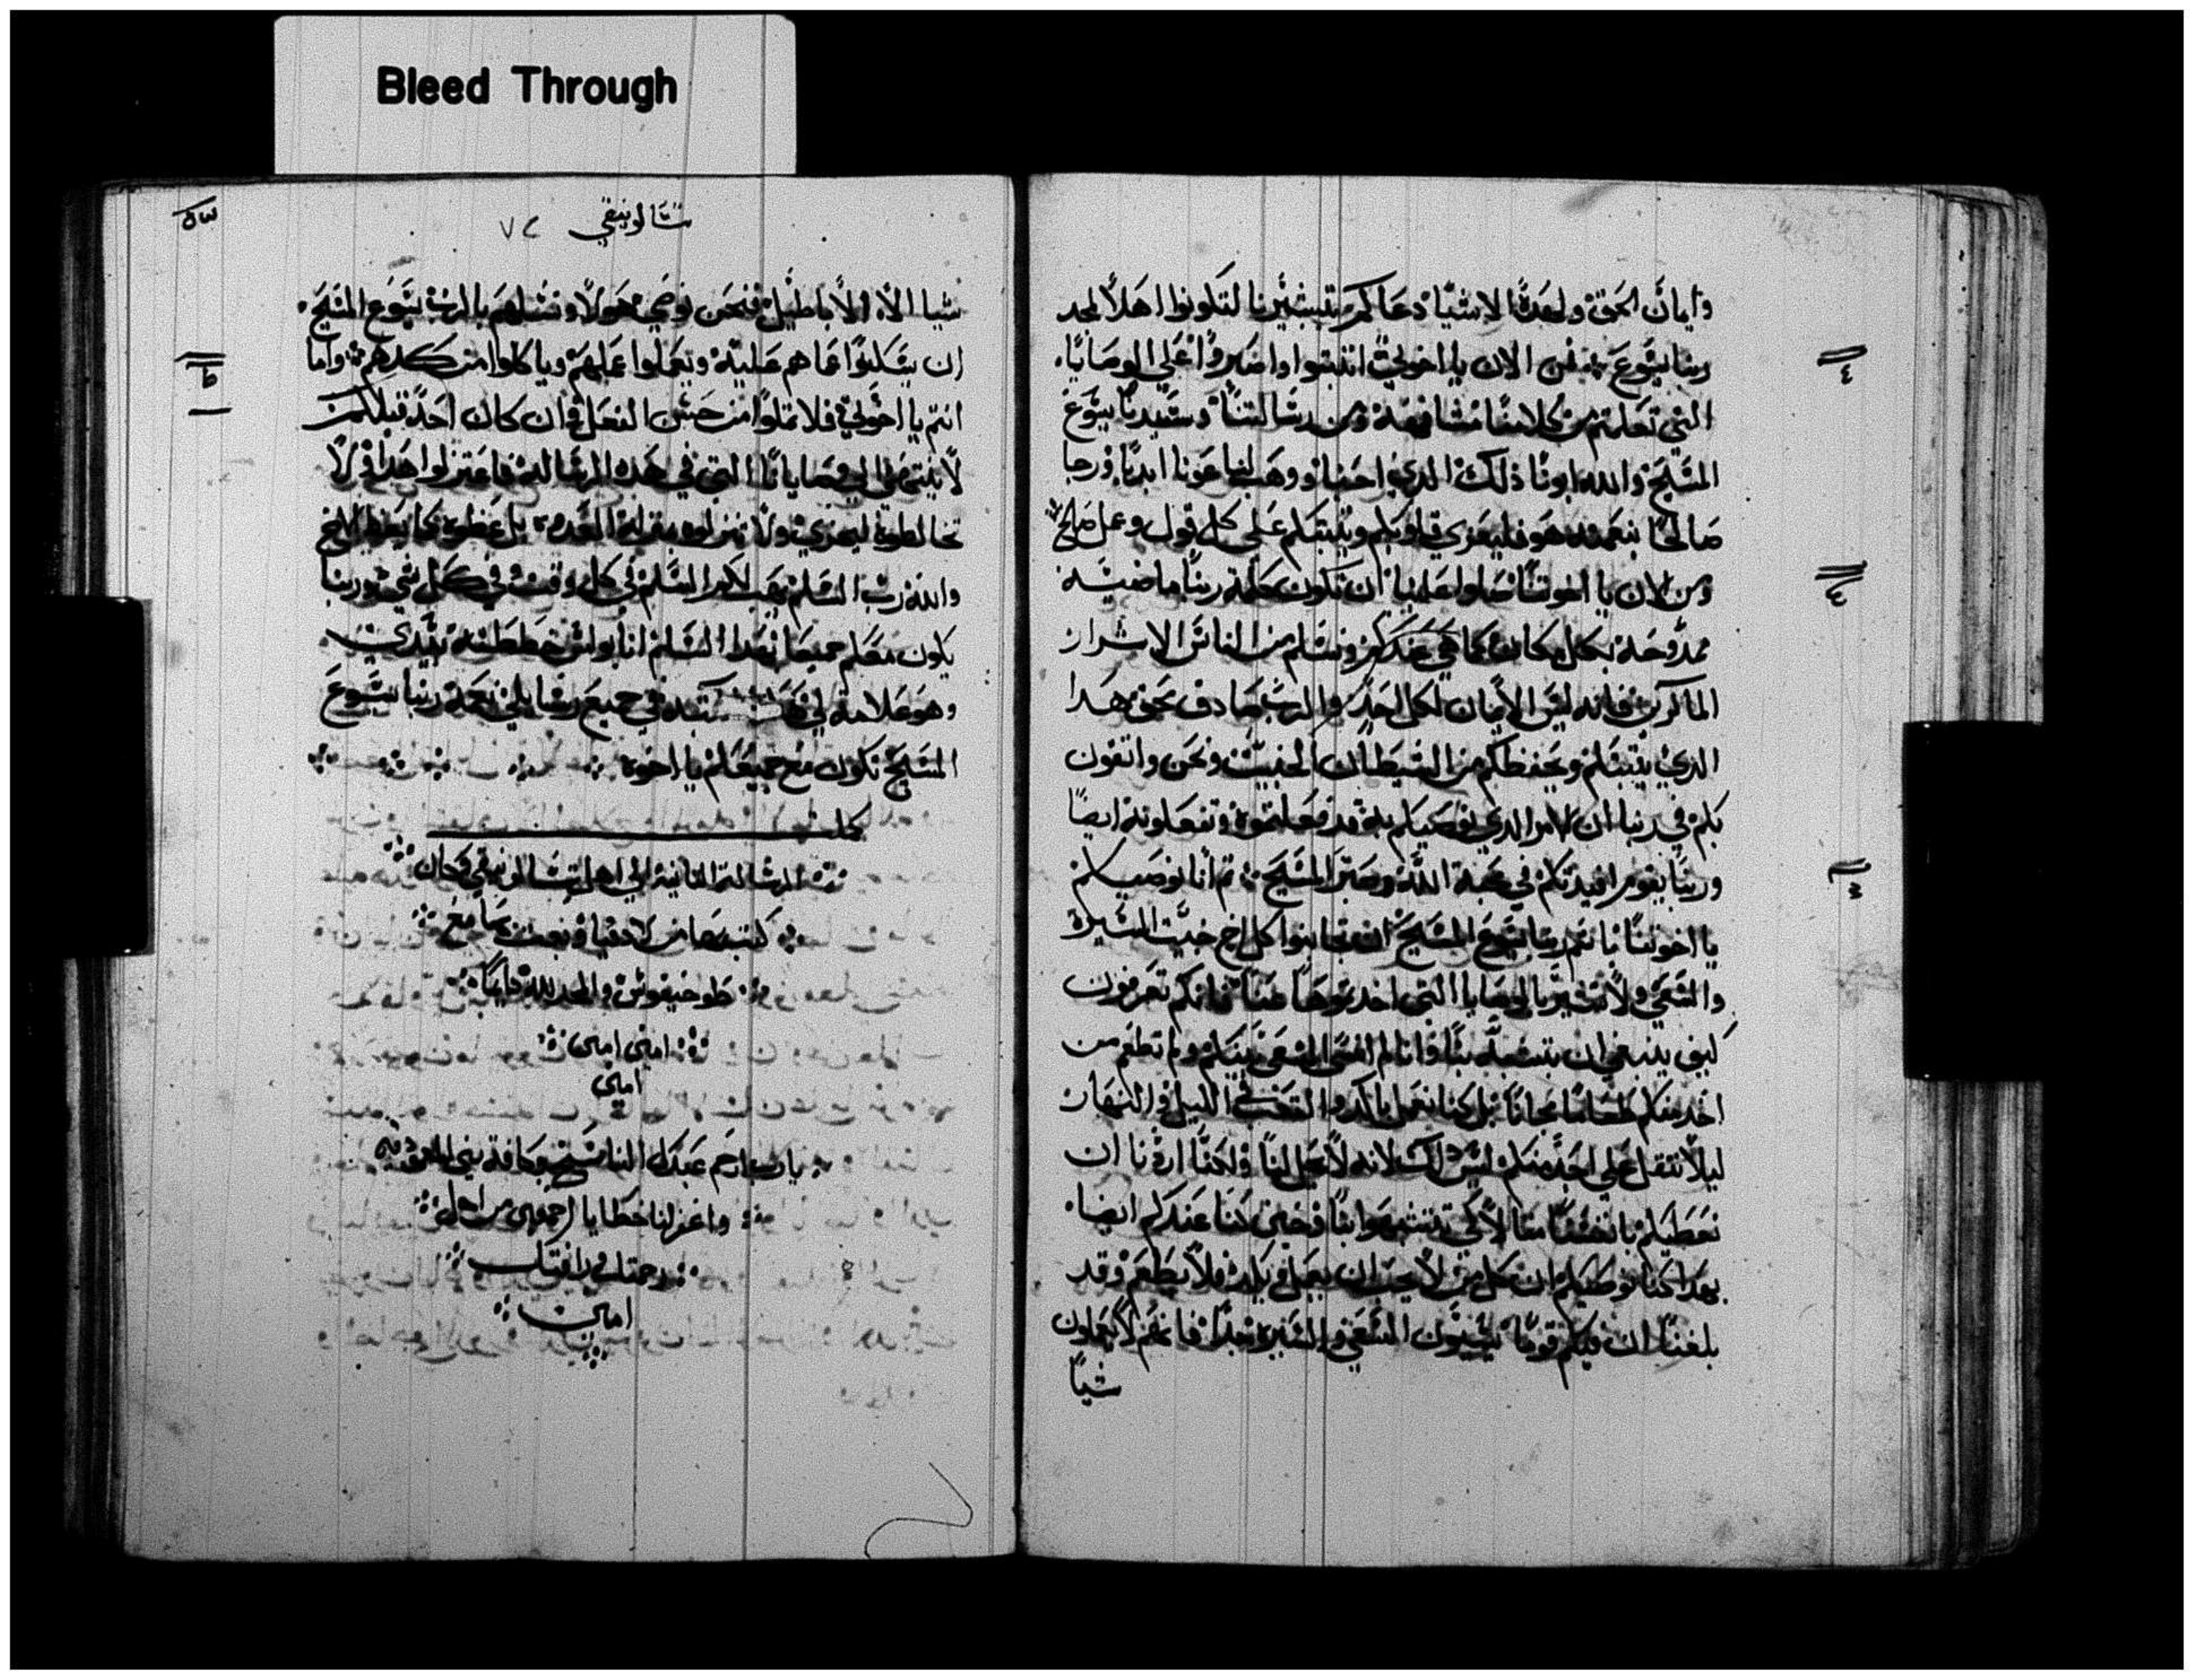 Bleed Through
وايمان الحق ولهدة الاشيا دعاكم بتبشيرنا لتكونوا اهلا لمجد
ربنا يسوع فمن الان يا اخوتي اثبتوا واصبروا علي الوصايا
التي تعلمتم من كلامنا مشافهة ومن رسالتنا وسيدنا يسوع
المسيح والله ابونا ذلك الدي احبنا ووهب لنا عونا ابديا ورجا
صالحا بنعمته هو فليعزي قلوبكم ويثبتكم علي كل قول وعمل صالح
ومن الان يا اخوتنا صلوا علينا ان تكون كلمة ربنا ماضية
ممدوحة بكل مكان كما هي عندكم ونسلم من الناس الاشرار
الماكرين فانه ليس الايمان لكل احد والرب صادق محق هدا
الدي يثبتكم ويحفظكم من الشيطان الخبيث ونحن واتقون
بكم في ربنا ان الامر الدي نوصيكم به قد فعلتموه وتفعلونه ايضا
وربنا يقوم افيدتكم في محبة الله وصبر المسيح ثم انا نوصيكم
يا اخوتنا باسم ربنا يسوع المسيح ان تجانبوا كل اخ خبيت السيرة
والسعي ولا يسير بالوصايا التي اخدتموها عنا فانكم تعرفون
كيف ينبغي ان يتشبه بنا فانا لم نسي السعي بينكم ولم نطعم من
احد منكم طعاما مجانا بل كنا نعمل بالكد والتعب في الليل والنهار
ليلا نتقل علي احد منكم ليس دلك لانه لا يحل لنا ولكنا اردنا ان
نعطيكم بانفسنا مثالا كي تتشبهوا بنا وحين كنا عندكم ايضا
بهدا كنا نوصيكم ان كل من لا يحب ان يعمل ويكد فلا يطعم وقد
بلغنا ان فيكم قوما يسيون السعي والسيرة جدا فانهم لا يعملون
شيا
تسالونيقي ٧٢
شيا الا الاباطيل فنحن نوصي هولا ونسلهم بالرب يسوع المسيح
ان يسكنوا عما هم علية ويعملوا عملهم وياكلوا من كدهم واما
انتم يا اخوتي فلا تملوا من حسن الفعل وان كان احد قبلكم
لا ينتهي الي وصايانا التي في هده الرسالة فاعتزلوا هدا ولا
تخالطوه ليخزي ولا تنزلوه بمنزلة العدو بل عظوه كما يعظ الاخ
والله رب السلم يهب لكم السلم في كل وقت وفي كل شي وربنا
يكون معكم جميعا بهدا السلم انا بولس خططته بيدي
وهو علامة لي كتبته في جميع رسايلي نعمة ربنا يسوع
المسيح تكون مع جميعكم يا اخوة
كملت
تمت الرسالة التانية الي اهل تسالونيقي وكان
كتبها من لادقيا وبعث بها مع
طوخيقوس والمجد لله دايما
امين امين
امين
يارب ارحم عبدك الناسخ وكافة بني المعمودية
واغفر لنا خطايا اجمعين من اجل
رحمتك ورافتك
امين